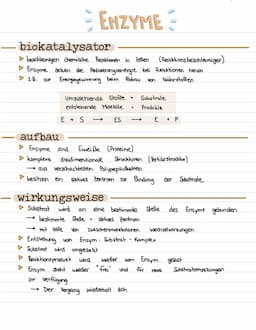 ENZYME
biokatalysator
beschleunigen chemische Reaktionen in Zellen (Reaktionsbeschleuniger)
Enzyme setzen die Aktivierungsenergie bei Reaktionen herab
z.B. zur Energiegewinnung beim Abbau von Nährstoffen
Umzusetzende Stoffe = Substrate
entstehende Moleküle = Produkte
E + S → ES → E + P
aufbau
Enzyme sind Eiweiße (Proteine)
komplexe dreidimensionale Strukturen (Tertiärstruktur)
→ aus verschachtelten Polypeptidketten
besitzen ein aktives Zentrum zur Bindung der Substrate
wirkungsweise
Substrat wird an eine bestimmte Stelle des Enzyms gebunden
→ bestimmte Stelle = aktives Zentrum
→ mit Hilfe von zwischenmolekularen Wechselwirkungen
Entstehung von Enzym-Substrat-Komplex
Substrat wird umgesetzt
Reaktionsprodukt wird wieder vom Enzym gelöst
Enzym steht wieder "frei" und für neue Substratumsetzungen
zur Verfügung
→ Der Vorgang wiederholt sich